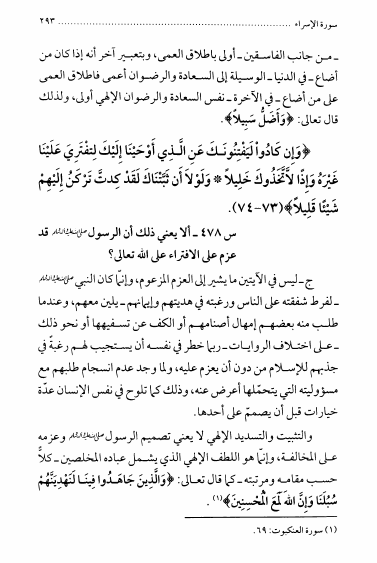 سورة الإسراء ........................................ ٢٩٣
ـ من جانب الفاسقين ـ أولى باطلاق العمى، وبتعبير آخر أنه إذا كان من
أضاع ـ في الدنيا ـ الوسيلة إلى السعادة والرضوان أعمى فاطلاق العمى
على من أضاع ـ في الآخرة ـ نفس السعادة والرضوان الإلهي أولى، ولذلك
قال تعالى: ﴿وَأَضَلُّ سَبِيلاً﴾.
﴿وَإِن كَادُواْ لَيَفْتِنُونَكَ عَنِ الَّذِي أَوْحَيْنَا إِلَيْكَ لِتفْتَرِيَ عَلَيْنَا
غَيْرَهُ وَإِذًا لاَّتَّخَذُوكَ خَلِيلاً * وَلَوْلاَ أَن ثَبَّتْنَاكَ لَقَدْ كِدتَّ تَرْكَنُ إِلَيْهِمْ
شَيْئًا قَلِيلاً﴾(٧٣-٧٤).
س ٤٧٨ ـ ألا يعني ذلك أن الرسول قد
عزم على الافتراء على الله تعالى؟
ج ـ ليس في الآيتين ما يشير إلى العزم المزعوم، وإنّما كان النبي
ـ لفرط شفقته على الناس ورغبته في هديتهم وإيمانهم ـ يلين معهم، وعندما
طلب منه بعضهم إمهال أصنامهم أو الكف عن تسفيهها أو نحو ذلك
ـ على اختلاف الروايات ـ ربما خطر في نفسه أن يستجيب لهم رغبةً في
جذبهم للإسلام من دون أن يعزم عليه، ولما وجد عدم انسجام طلبهم مع
مسؤوليته التي يتحمّلها أعرض عنه، وذلك كما تلوح في نفس الإنسان عدّة
خيارات قبل أن يصممّ على أحدها.
والتثبيت والتسديد الإلهي لا يعني تصميم الرسول وعزمه
على المخالفة، وإنّما هو اللطف الإلهي الذي يشمل عباده المخلصين ـ كلاًّ
حسب مقامه ومرتبته ـ كما قال تعالى: ﴿وَالَّذِينَ جَاهَدُوا فِينَا لَنَهْدِيَنَّهُمْ
سُبُلَنَا وَإِنَّ اللهَ لَمَعَ الْمُحْسِنِينَ﴾(١).
(١) سورة العنكبوت: ٦٩.